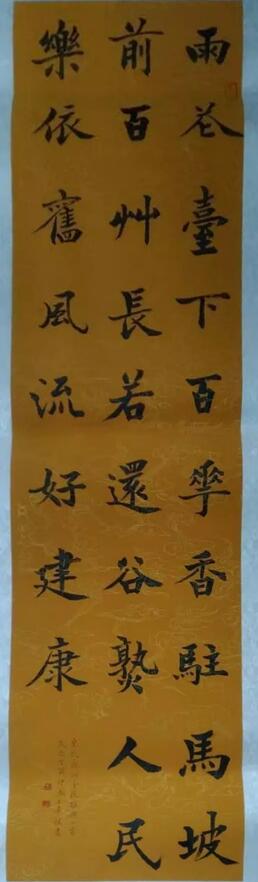 雨花臺下百華香駐馬坡
前百艸長若還谷熟人民
樂依舊風流好建康